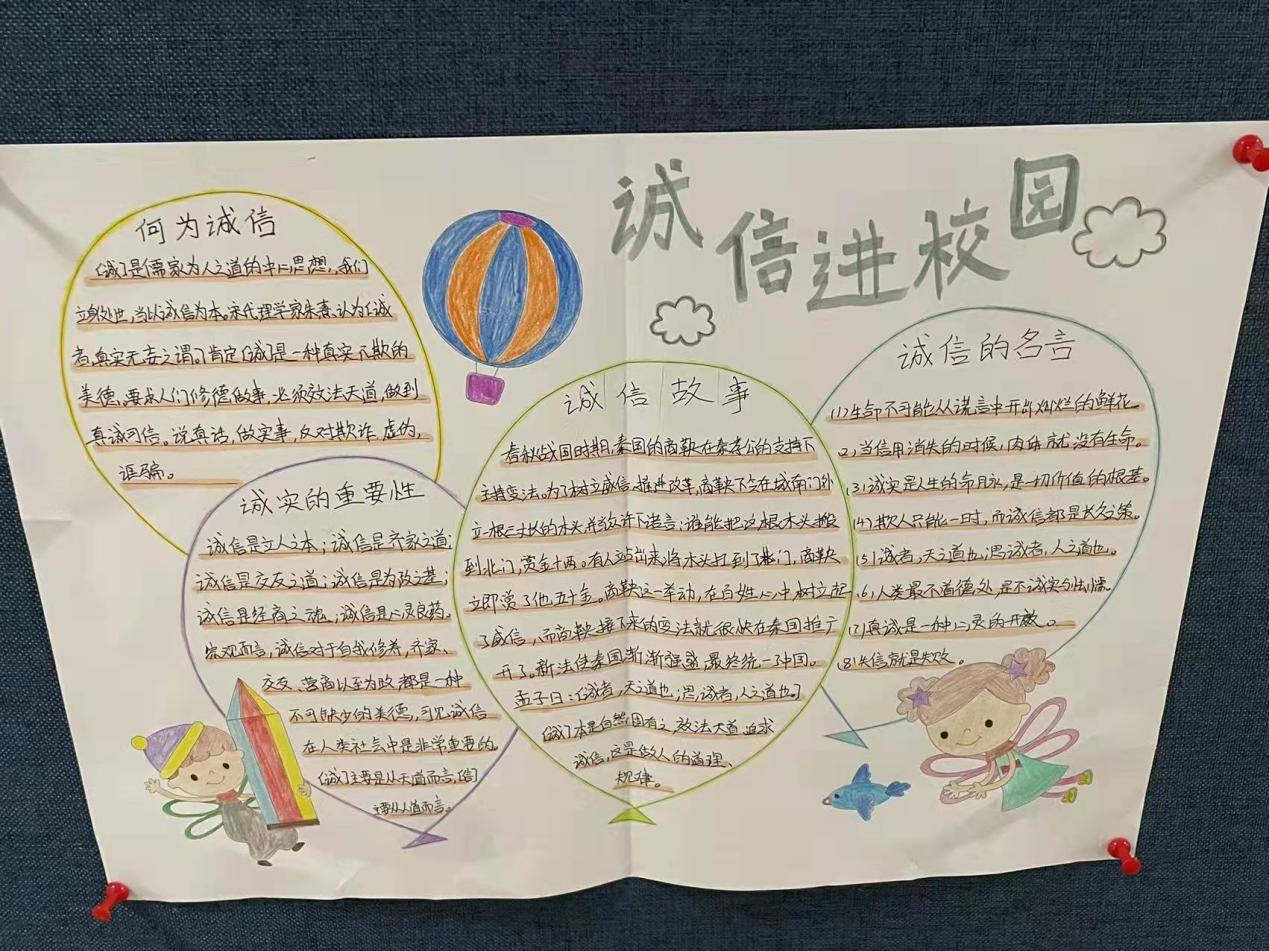 诚信进校园
何为诚信
「诚」是儒家为人之道的中心思想,我们
立身处世,当以诚信为本。宋代理学家朱熹,认为「诚
者,真实无妄之谓」肯定「诚」是一种真实不欺的
美德。要求人们修德做事,必须效法天道,做到
真诚可信。说真话,做实事,反对欺诈、虚伪,
诓骗。
诚实的重要性
诚信是立人之本;诚信是齐家之道;
诚信是交友之道;诚信是为政之基;
诚信是经商之魂;诚信是心灵良药。
宏观而言,诚信对于自我修养、齐家、
交友、营商以至为政,都是一种
不可缺少的美德,可见诚信
在人类社会中是非常重要的。
「诚」主要是从天道而言,「信」
主要从人道而言。
诚信故事
春秋战国时期,秦国的商鞅在秦孝公的支持下
主持变法。为了树立威信,推进改革,商鞅下令在城南门外
立一根三丈长的木头,并当众许下诺言:谁能把这根木头搬
到北门,赏金十两。有人站出来将木头扛到了北门,商鞅
立即赏了他五十金。商鞅这一举动,在百姓心中树立起
了威信,而商鞅接下来的变法就很快在秦国推广
开了。新法使秦国渐渐强盛,最终统一了中国。
孟子曰:「诚者,天之道也;思诚者,人之道也。」
「诚」本是自然固有之,效法天道、追求
诚信,这是做人的道理、
规律。
诚信的名言
(1)生命不可能从谎言中开出灿烂的鲜花
(2)当信用消失的时候,肉体就没有生命。
(3)诚实是人生的命脉,是一切价值的根基。
(4)欺人只能一时,而诚信都是长久之策。
(5)诚者,天之道也;思诚者,人之道也。
(6)人类最不道德处,是不诚实与怯懦。
(7)真诚是一种心灵的开放。
(8)失信就是失败。